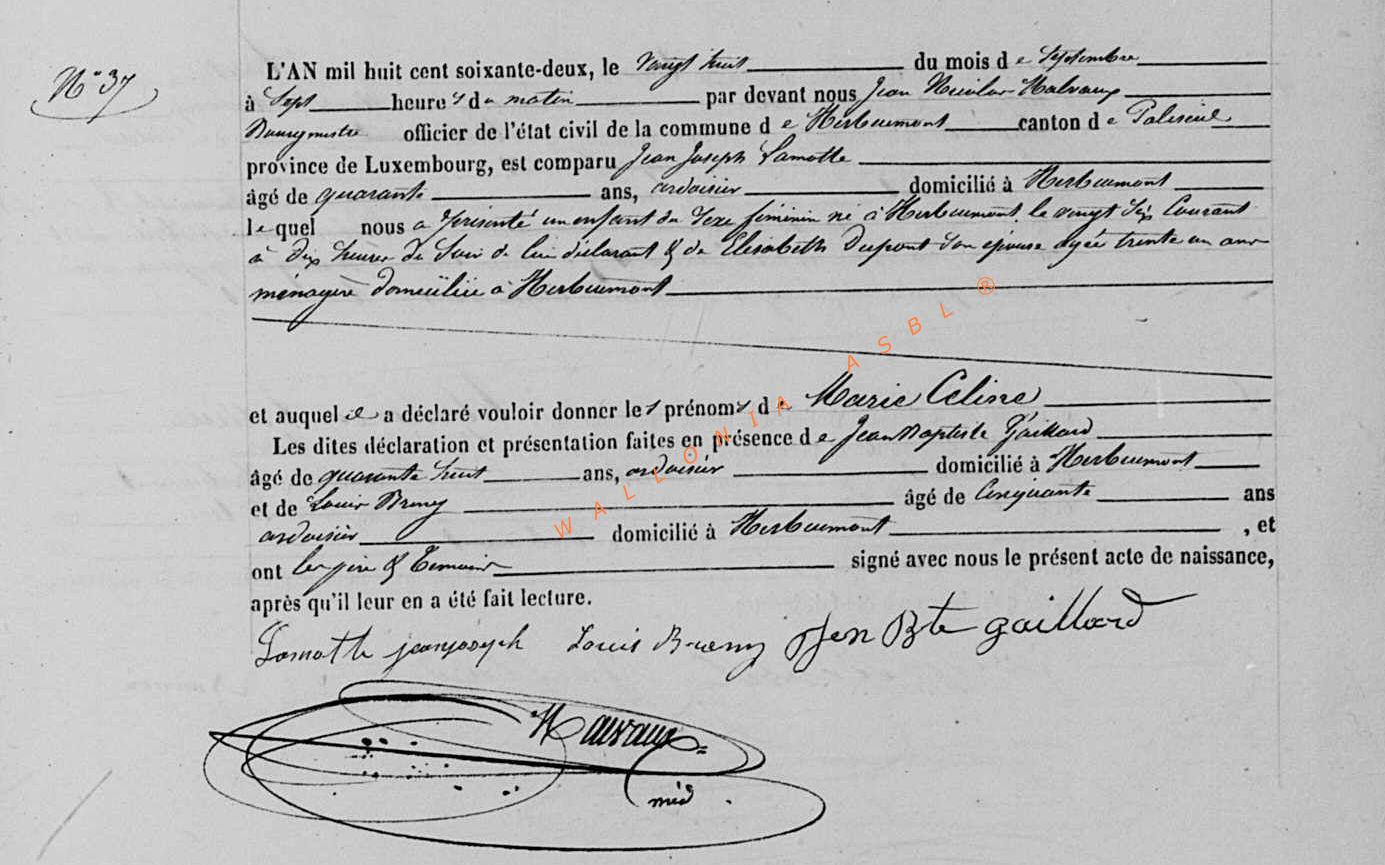 N° 37
L'AN mil huit cent soixante-deux, le vingt huit du mois de Septembre
à Sept heures du matin par devant nous Jean Nicolas Halvaux
Bourgmestre officier de l'état civil de la commune de Herbeumont canton de Paliseul
province de Luxembourg, est comparu Jean Joseph Lamotte
âgé de quarante ans, ardoisier domicilié à Herbeumont
lequel nous a présenté un enfant du sexe féminin né à Herbeumont le vingt six Courant
à dix heures du soir de lui déclarant & de Elisabeth Dupont son épouse agée trente un ans
ménagère domiciliée à Herbeumont
et auquel il a déclaré vouloir donner les prénoms de Marie Celine
Les dites déclaration et présentation faites en présence de Jean Baptiste Gaillard
âgé de quarante huit ans, ardoisier domicilié à Herbeumont
et de Louis âgé de Cinquante ans
ardoisier domicilié à Herbeumont , et
ont les père & Temoins signé avec nous le présent acte de naissance,
après qu'il leur en a été fait lecture.
Lamotte jean joseph Louis Jen Bte gaillard
WALLONIA ASBL ®